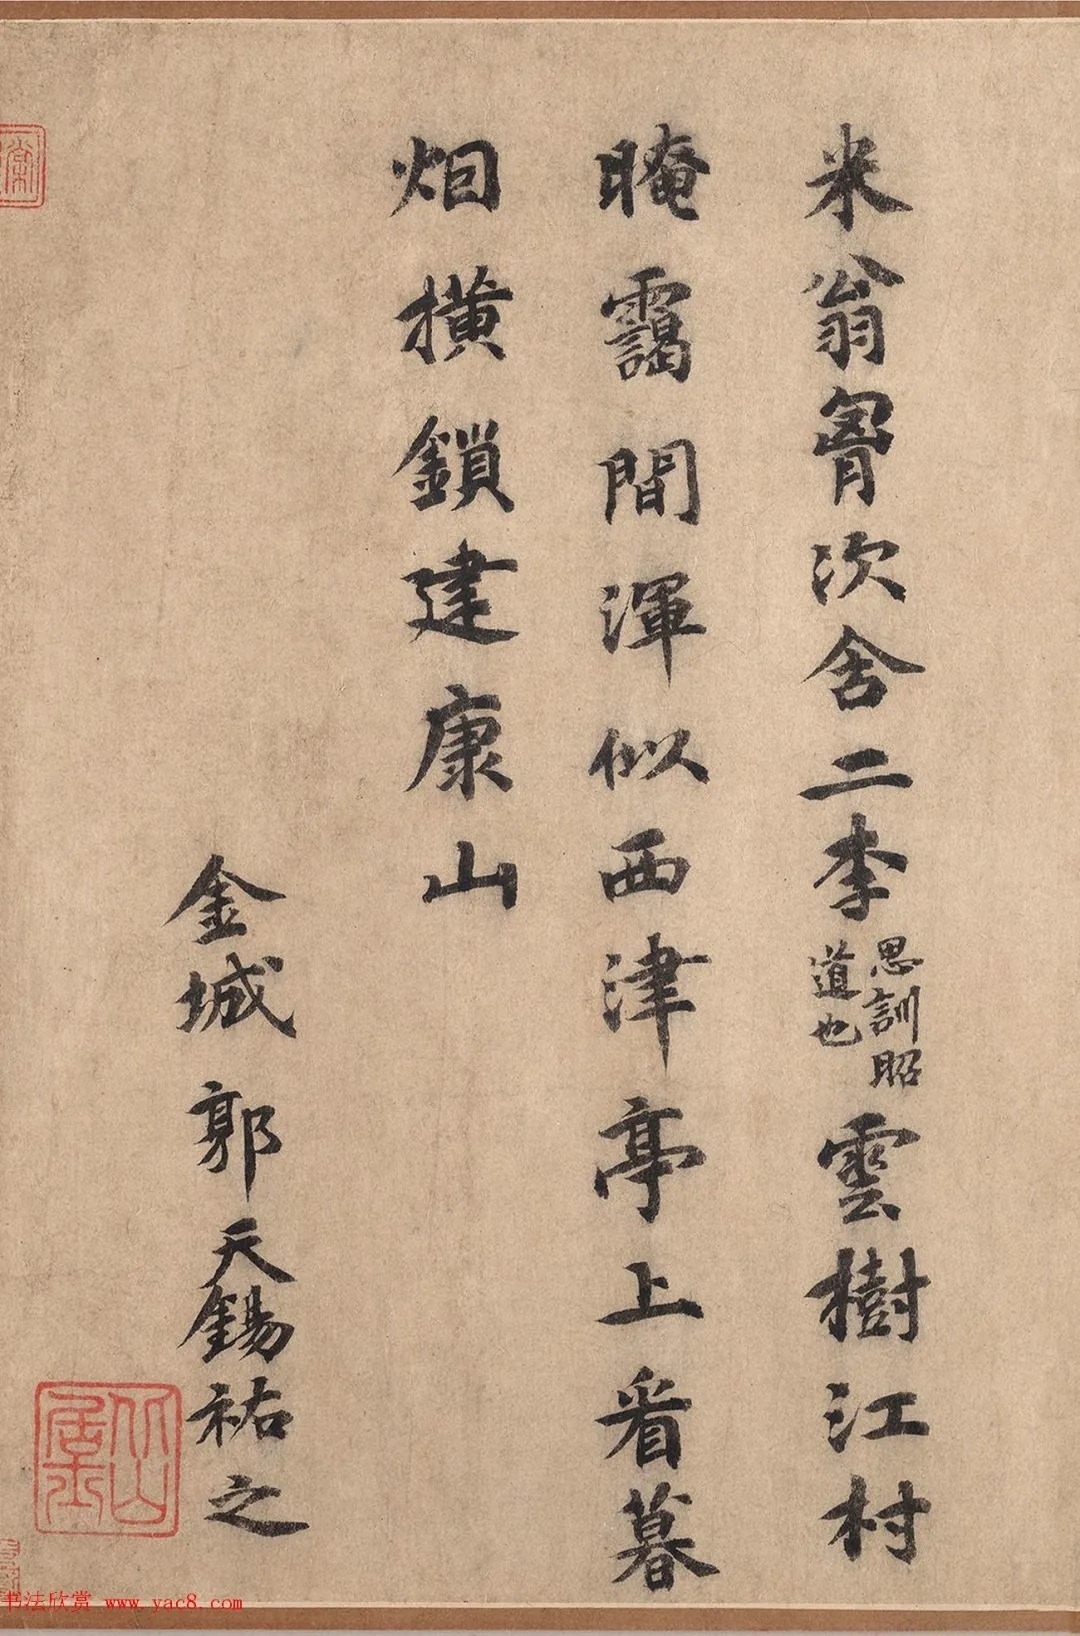 米翁胷次舍二李思訓昭道也雲樹江村
晻靄間渾似西津亭上看暮
烟橫鎖建康山
金城郭天錫祐之
書法欣赏 www.yac8.com